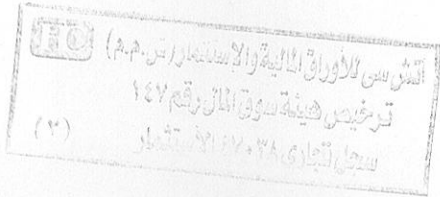 اتش سى للأوراق المالية والإستثمار (ش.م.م)
HC
ترخيص هيئة سوق المال رقم ١٤٧
سجل تجارى ٤٧٠٣٨ الأستثمار
(٣)